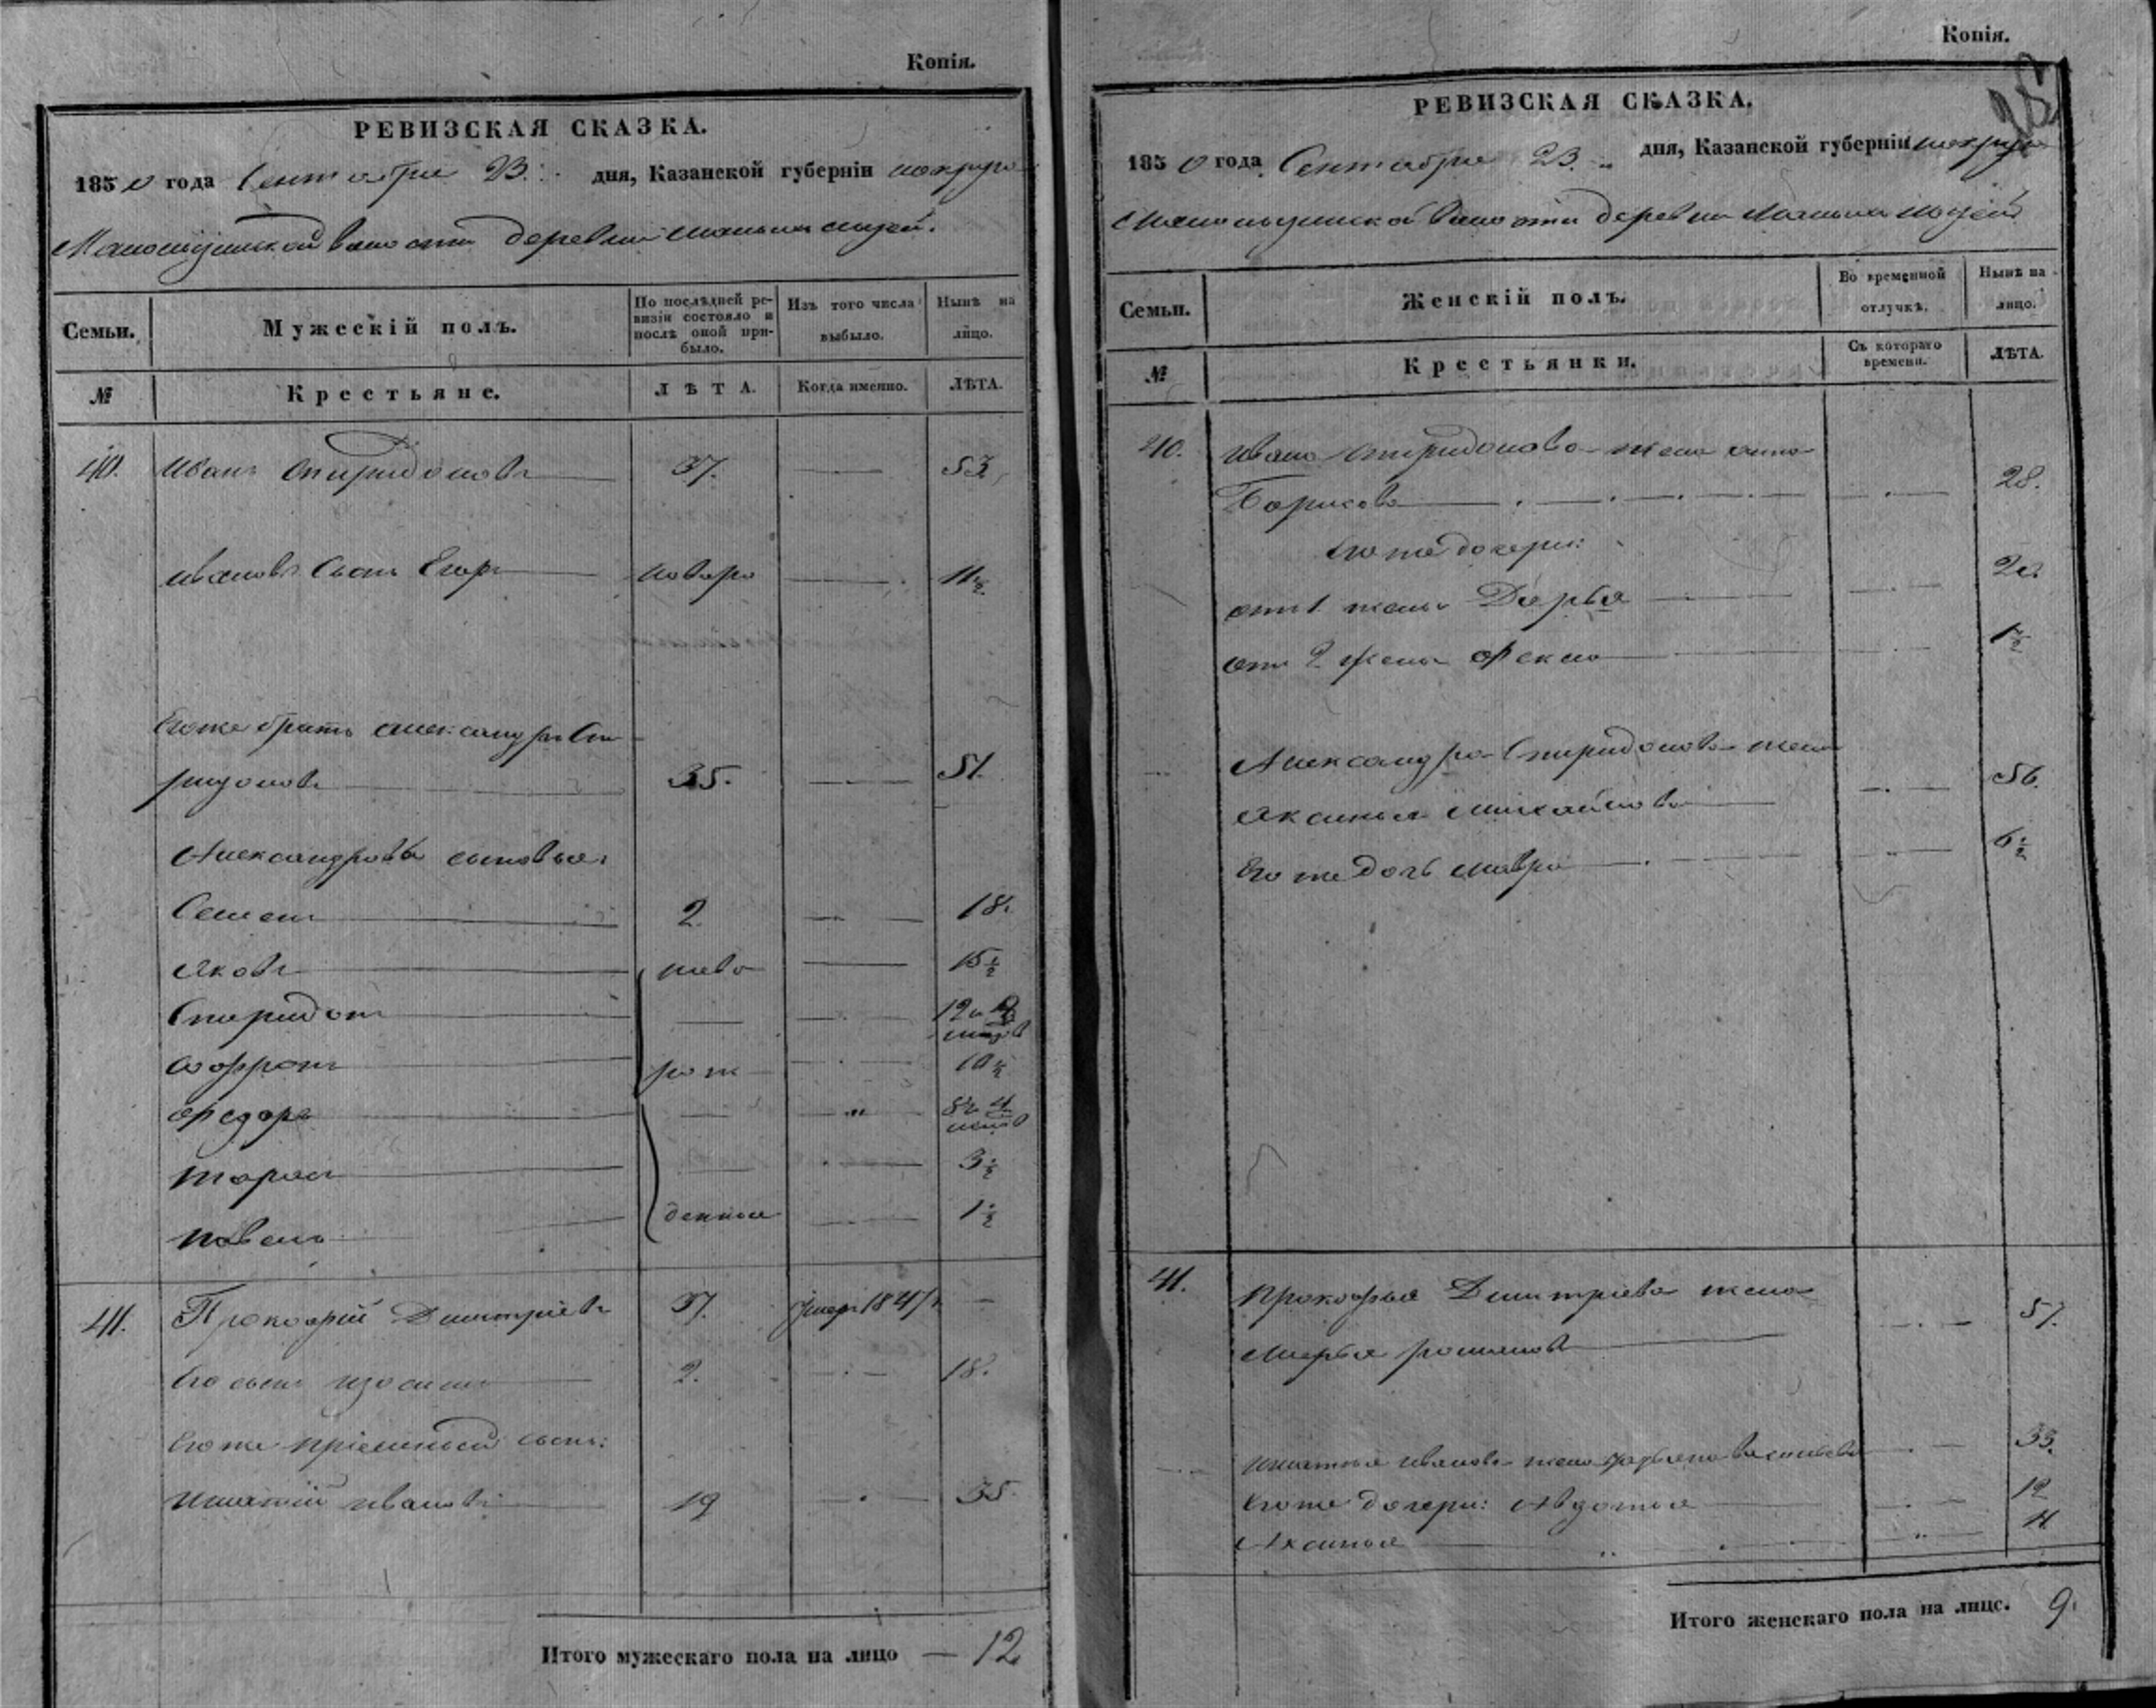 Копія.
РЕВИЗСКАЯ СКАЗКА.
1850 года Сентября 23 дня, Казанской губерніи
волости деревни
Семьи.
Мужескій полъ.
По послѣдней ревизіи состояло и послѣ оной прибыло.
Изъ того числа выбыло.
Нынѣ на лицо.
№
Крестьяне.
ЛѢТА.
Когда именно.
ЛѢТА.
40. Иванъ Спиридоновъ 37. 53
Ивановъ сынъ Егоръ 11½
Егоже братъ Александръ Спи
ридоновъ 35. 51.
Александровы сыновья:
Семенъ 2 18.
Яковъ ново 15½
Спиридонъ 12
Софронъ рож 10½
Федоръ 8 и 4
Тарасъ 3½
Павелъ денные 1½
41. Прокофій Дмитріевъ 37. умеръ 1847 —
Его сынъ Изосимъ 2. 18.
Егоже пріемный сынъ:
Игнатій Ивановъ 19 35.
Итого мужескаго пола на лицо — 12
Копія.
РЕВИЗСКАЯ СКАЗКА.
1850 года Сентября 23 дня, Казанской губерніи
волости деревни
Семьи.
Женскій полъ.
Во временной отлучкѣ.
Нынѣ на лицо.
№
Крестьянки.
Съ котораго времени.
ЛѢТА.
40. Ивана Спиридонова жена Анна
Борисова 28.
Его же дочери:
отъ 1 жены Дарья 20
отъ 2 жены Фекла 1½
Александра Спиридонова жена
Аксинья Михайлова 56.
Его же дочь Мавра 6½
41. Прокофья Дмитріева жена
Марья Романова 57.
Игнатья Иванова жена Васильева 33.
Егоже дочери: Авдотья 12
Аксинья 11
Итого женскаго пола на лицо. 9.